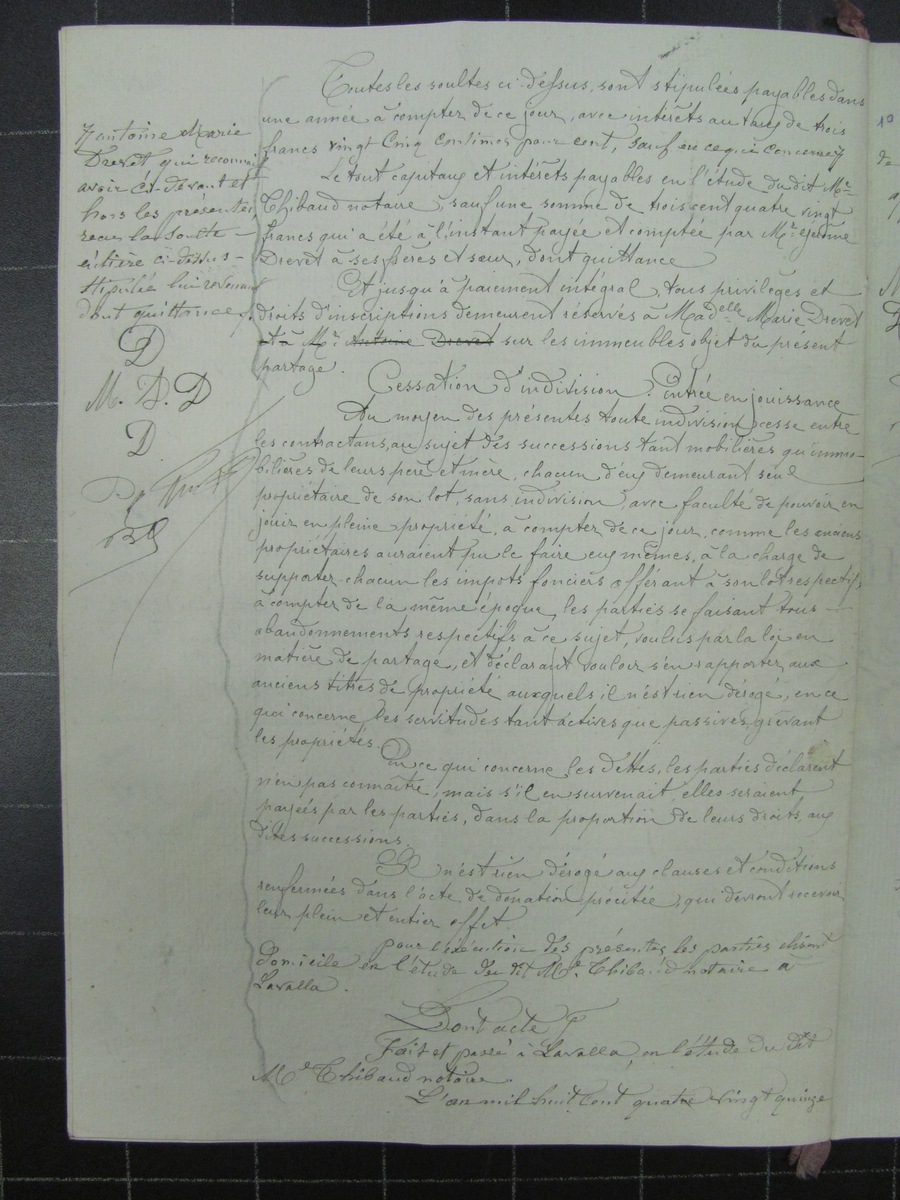 Toutes les soultes ci-dessus, sont stipulées payables dans
une année à compter de ce jour, avec intérêts au taux de trois
francs vingt cinq centimes pour cent, sauf en ce qui concerne
Le tout capitaux et intérêts payables en l'étude du dit Me
Thibaud notaire, sauf une somme de trois cent quatre vingt
francs qui a été à l'instant payée et comptée par Mr Jérôme
Drevet à ses frères et sœur, dont quittance
Et jusqu'à paiement intégral, tous privilèges et
droits d'inscriptions demeurent réservés à Madelle Marie Drevet
et à Mr Antoine Drevet sur les immeubles objet du présent
partage.
Cessation d'indivision. Entrée en jouissance
Au moyen des présentes toute indivision cesse entre
les contractans, au sujet des successions tant mobilières qu'immo-
bilières de leurs père et mère, chacun d'eux demeurant seul
propriétaire de son lot, sans indivision, avec faculté de pouvoir en
jouir en pleine propriété, à compter de ce jour, comme les anciens
propriétaires auraient pu le faire eux mêmes, à la charge de
supporter chacun les impots fonciers afférant à son lot respectif,
à compter de la même époque, les parties se faisant tous
abandonnements respectifs à ce sujet, voulus par la loi en
matière de partage, et déclarant vouloir s'en rapporter aux
anciens titres de propriété auxquels il n'est rien dérogé, en ce
qui concerne les servitudes tant actives que passives grévant
les propriétés.
En ce qui concerne les dettes, les parties déclarent
n'en pas connaître, mais s'il en survenait, elles seraient
payées par les parties, dans la proportion de leurs droits, aux
dites successions.
Il n'est rien dérogé aux clauses et conditions
renfermées dans l'acte de donation précitée, qui devront recevoir
leur plein et entier effet
Pour l'exécution des présentes, les parties élisent
domicile en l'étude du dit Me Thibaud notaire à
Lavalla.
Dont acte
Fait et passé à Lavalla, en l'étude du dit
Me Thibaud notaire.
L'an mil huit cent quatre vingt quinze
antoine Marie
Drevet qui reconnait
avoir ci-devant et
hors les présentes,
recu la soulte
entière ci-dessus
stipulée lui revenant
dont quittance
D
M. D. D
D